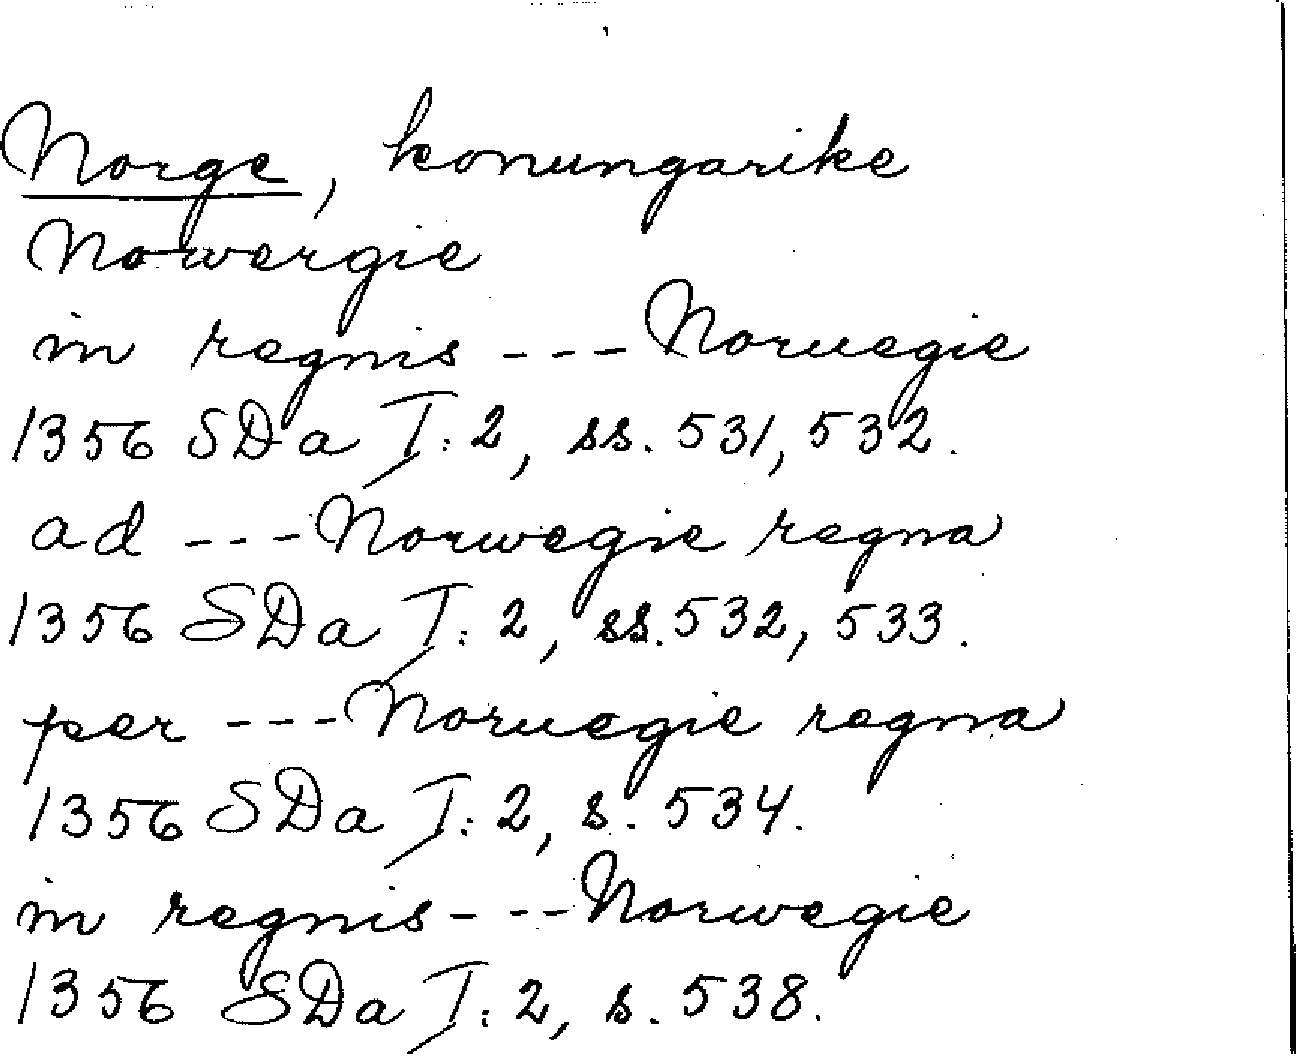 Norge, konungarike
Nowergie
in regnis --- Noruegie
1356 SDa I:2, ss. 531, 532.
ad --- Norwegie regna
1356 SDa I:2, ss. 532, 533.
per --- Noruegie regna
1356 SDa I:2, s. 534.
in regnis --- Norwegie
1356 SDa I:2, s. 538.